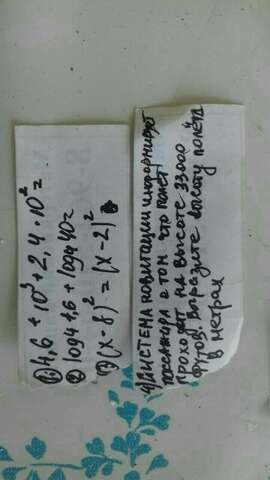 ① 4,6 + 10³ + 2,4 · 10² =
② log4 1,6 + log4 40 =
③ (x - 8)² = (x - 2)²
4) СИСТЕМА навигации информирует
пассажира о том что полет
проходит на высоте 33000
футов. Выразите высоту полёта
в метрах